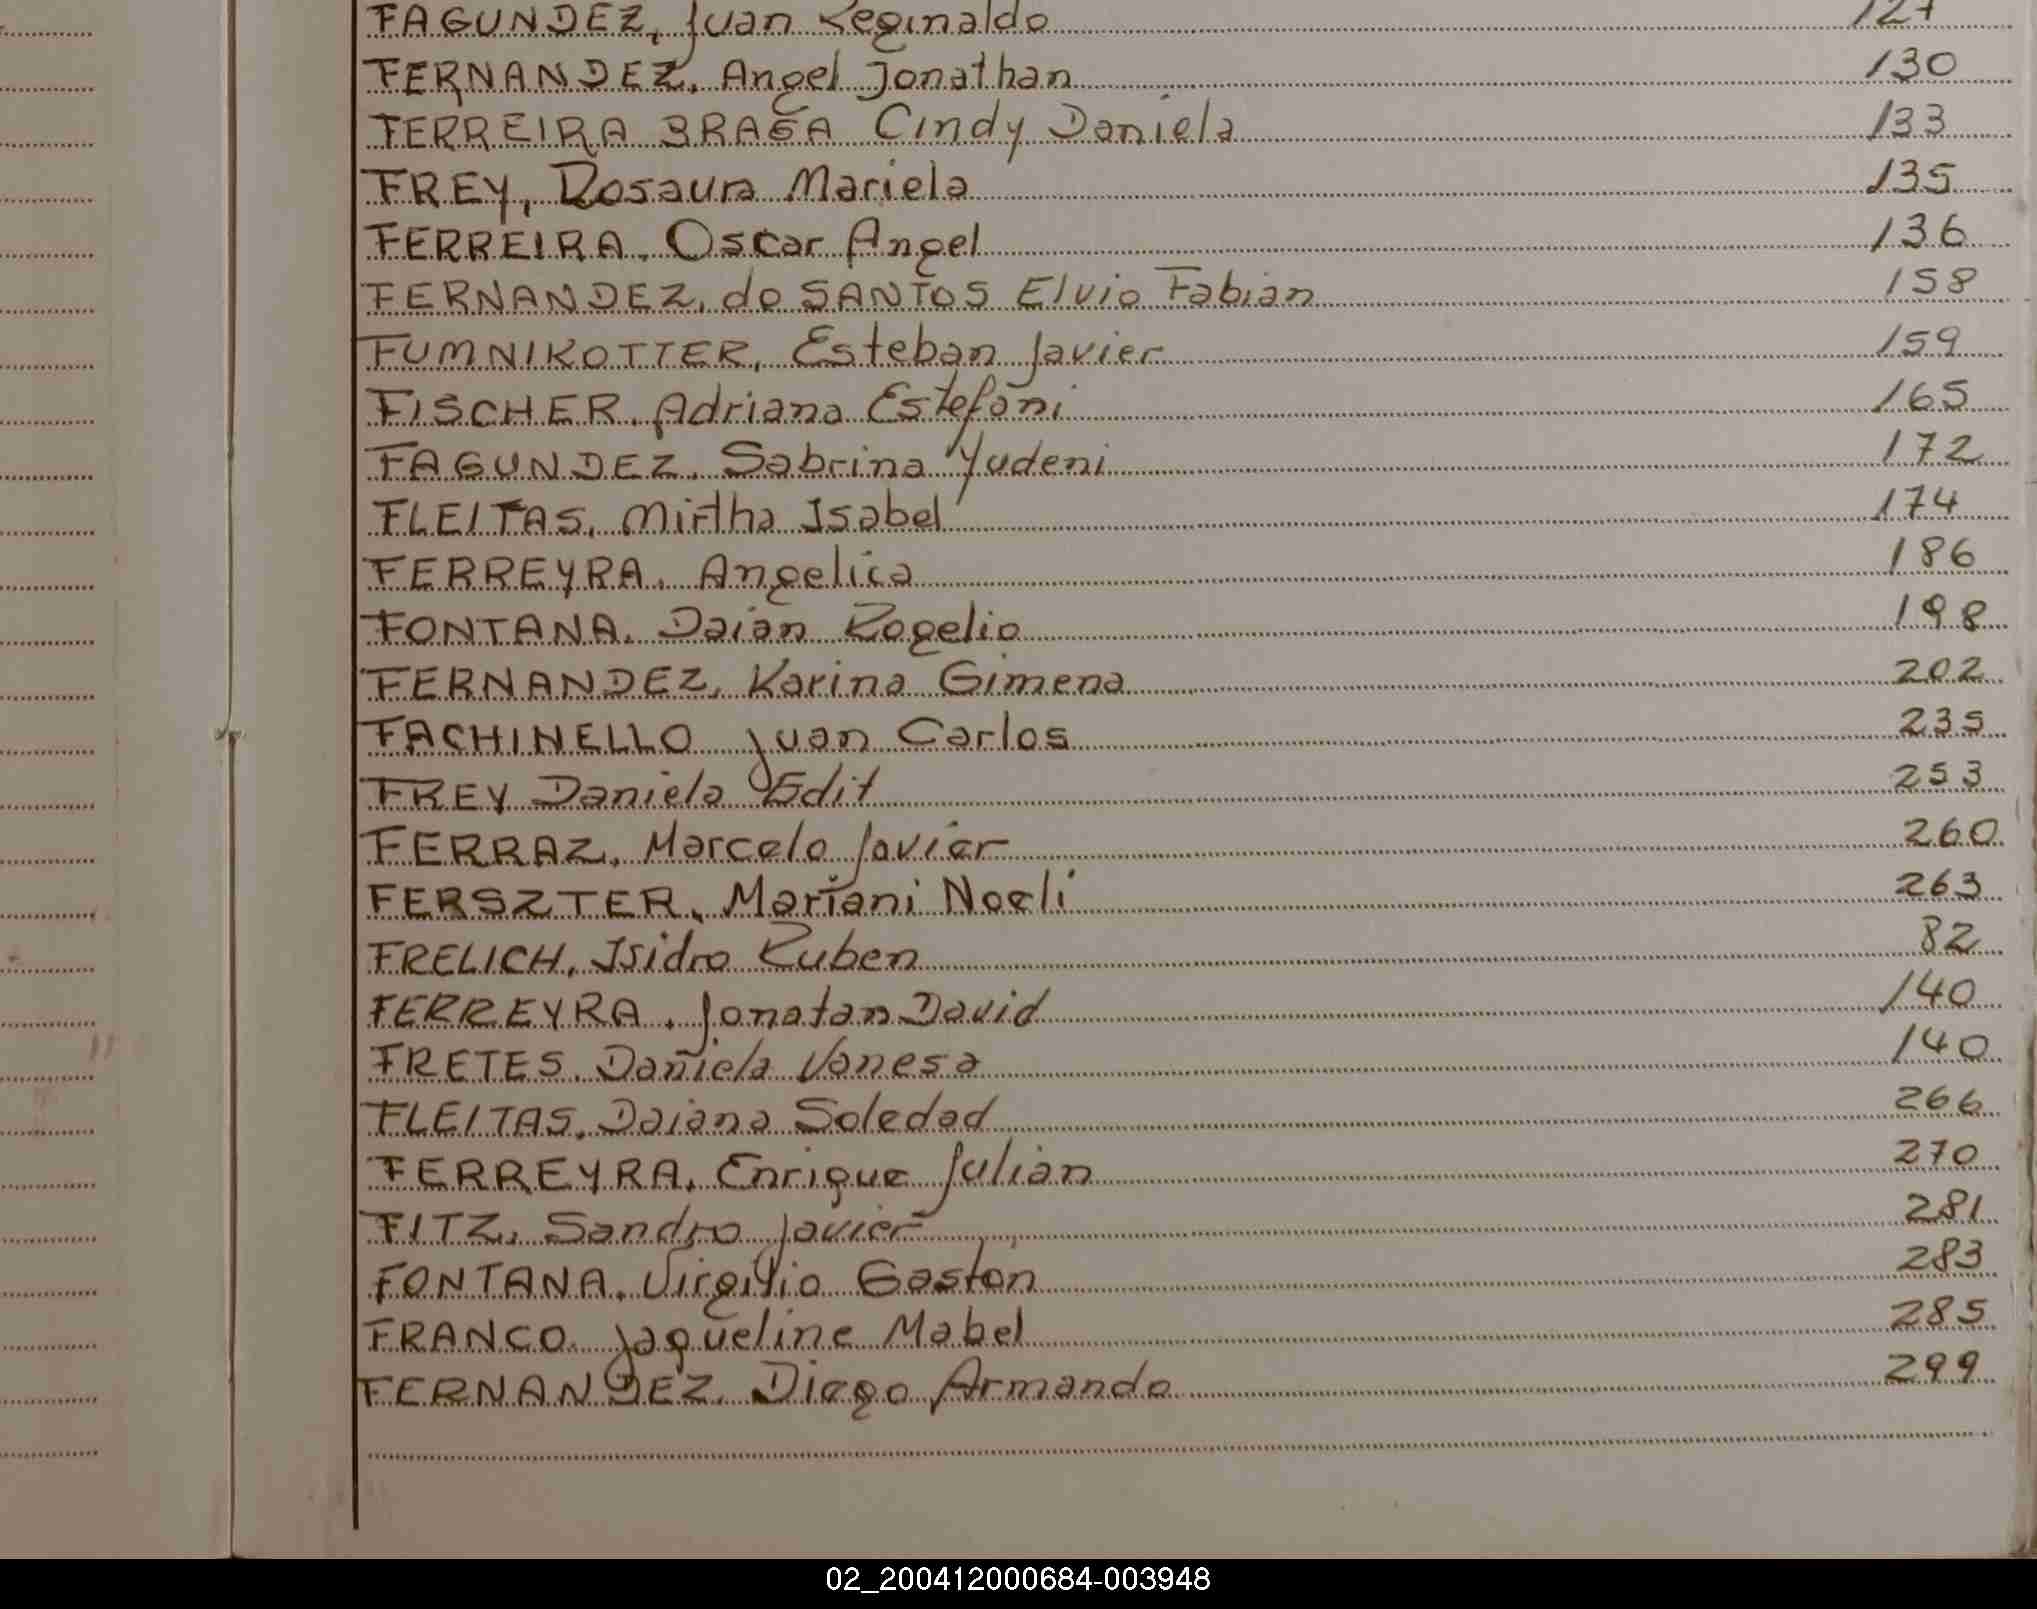 FAGUNDEZ, Juan Reginaldo 127
FERNANDEZ, Angel Jonathan 130
FERREIRA BRAGA Cindy Daniela 133
FREY, Rosaura Mariela 135
FERREIRA, Oscar Angel 136
FERNANDEZ, do SANTOS Elvio Fabian 158
FUMNIKOTTER, Esteban Javier 159
FISCHER, Adriana Estefani 165
FAGUNDEZ, Sabrina Yudeni 172
FLEITAS, Mirtha Isabel 174
FERREYRA, Angelica 186
FONTANA, Daian Rogelio 198
FERNANDEZ, Karina Gimena 202
FACHINELLO Juan Carlos 235
FREY Daniela Edit 253
FERRAZ, Marcelo Javier 260
FERSZTER, Mariani Noeli 263
FRELICH, Isidro Ruben 82
FERREYRA, Jonatan David 140
FRETES, Daniela Vanesa 140
FLEITAS, Daiana Soledad 266
FERREYRA, Enrique Julian 270
FITZ, Sandro Javier 281
FONTANA, Virgilio Gaston 283
FRANCO, Jaqueline Mabel 285
FERNANDEZ, Diego Armando 299
02_200412000684-003948